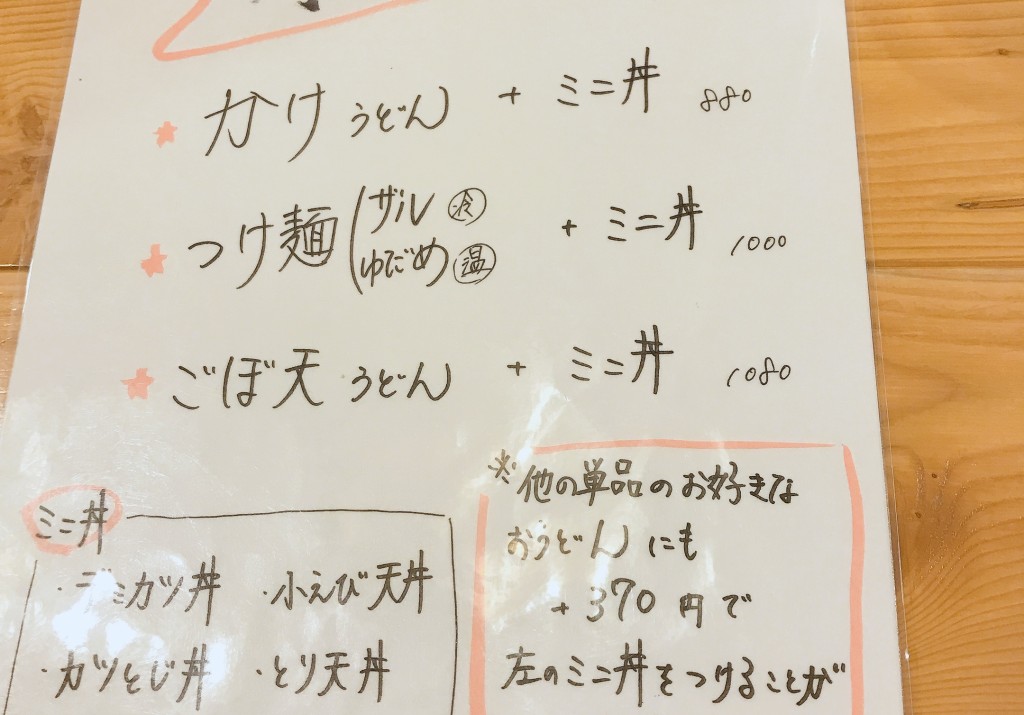 かけうどん + ミニ丼 880
つけ麺(ザル㊀冷 + ミニ丼 1000
ゆだめ 温
ごぼ天うどん + ミニ丼 1080
ミニ丼
・デミカツ丼 ・小えび天丼
・カツとじ丼 ・とり天丼
※他の単品のお好きな
おうどんにも
+370円で
左のミニ丼をつけることが